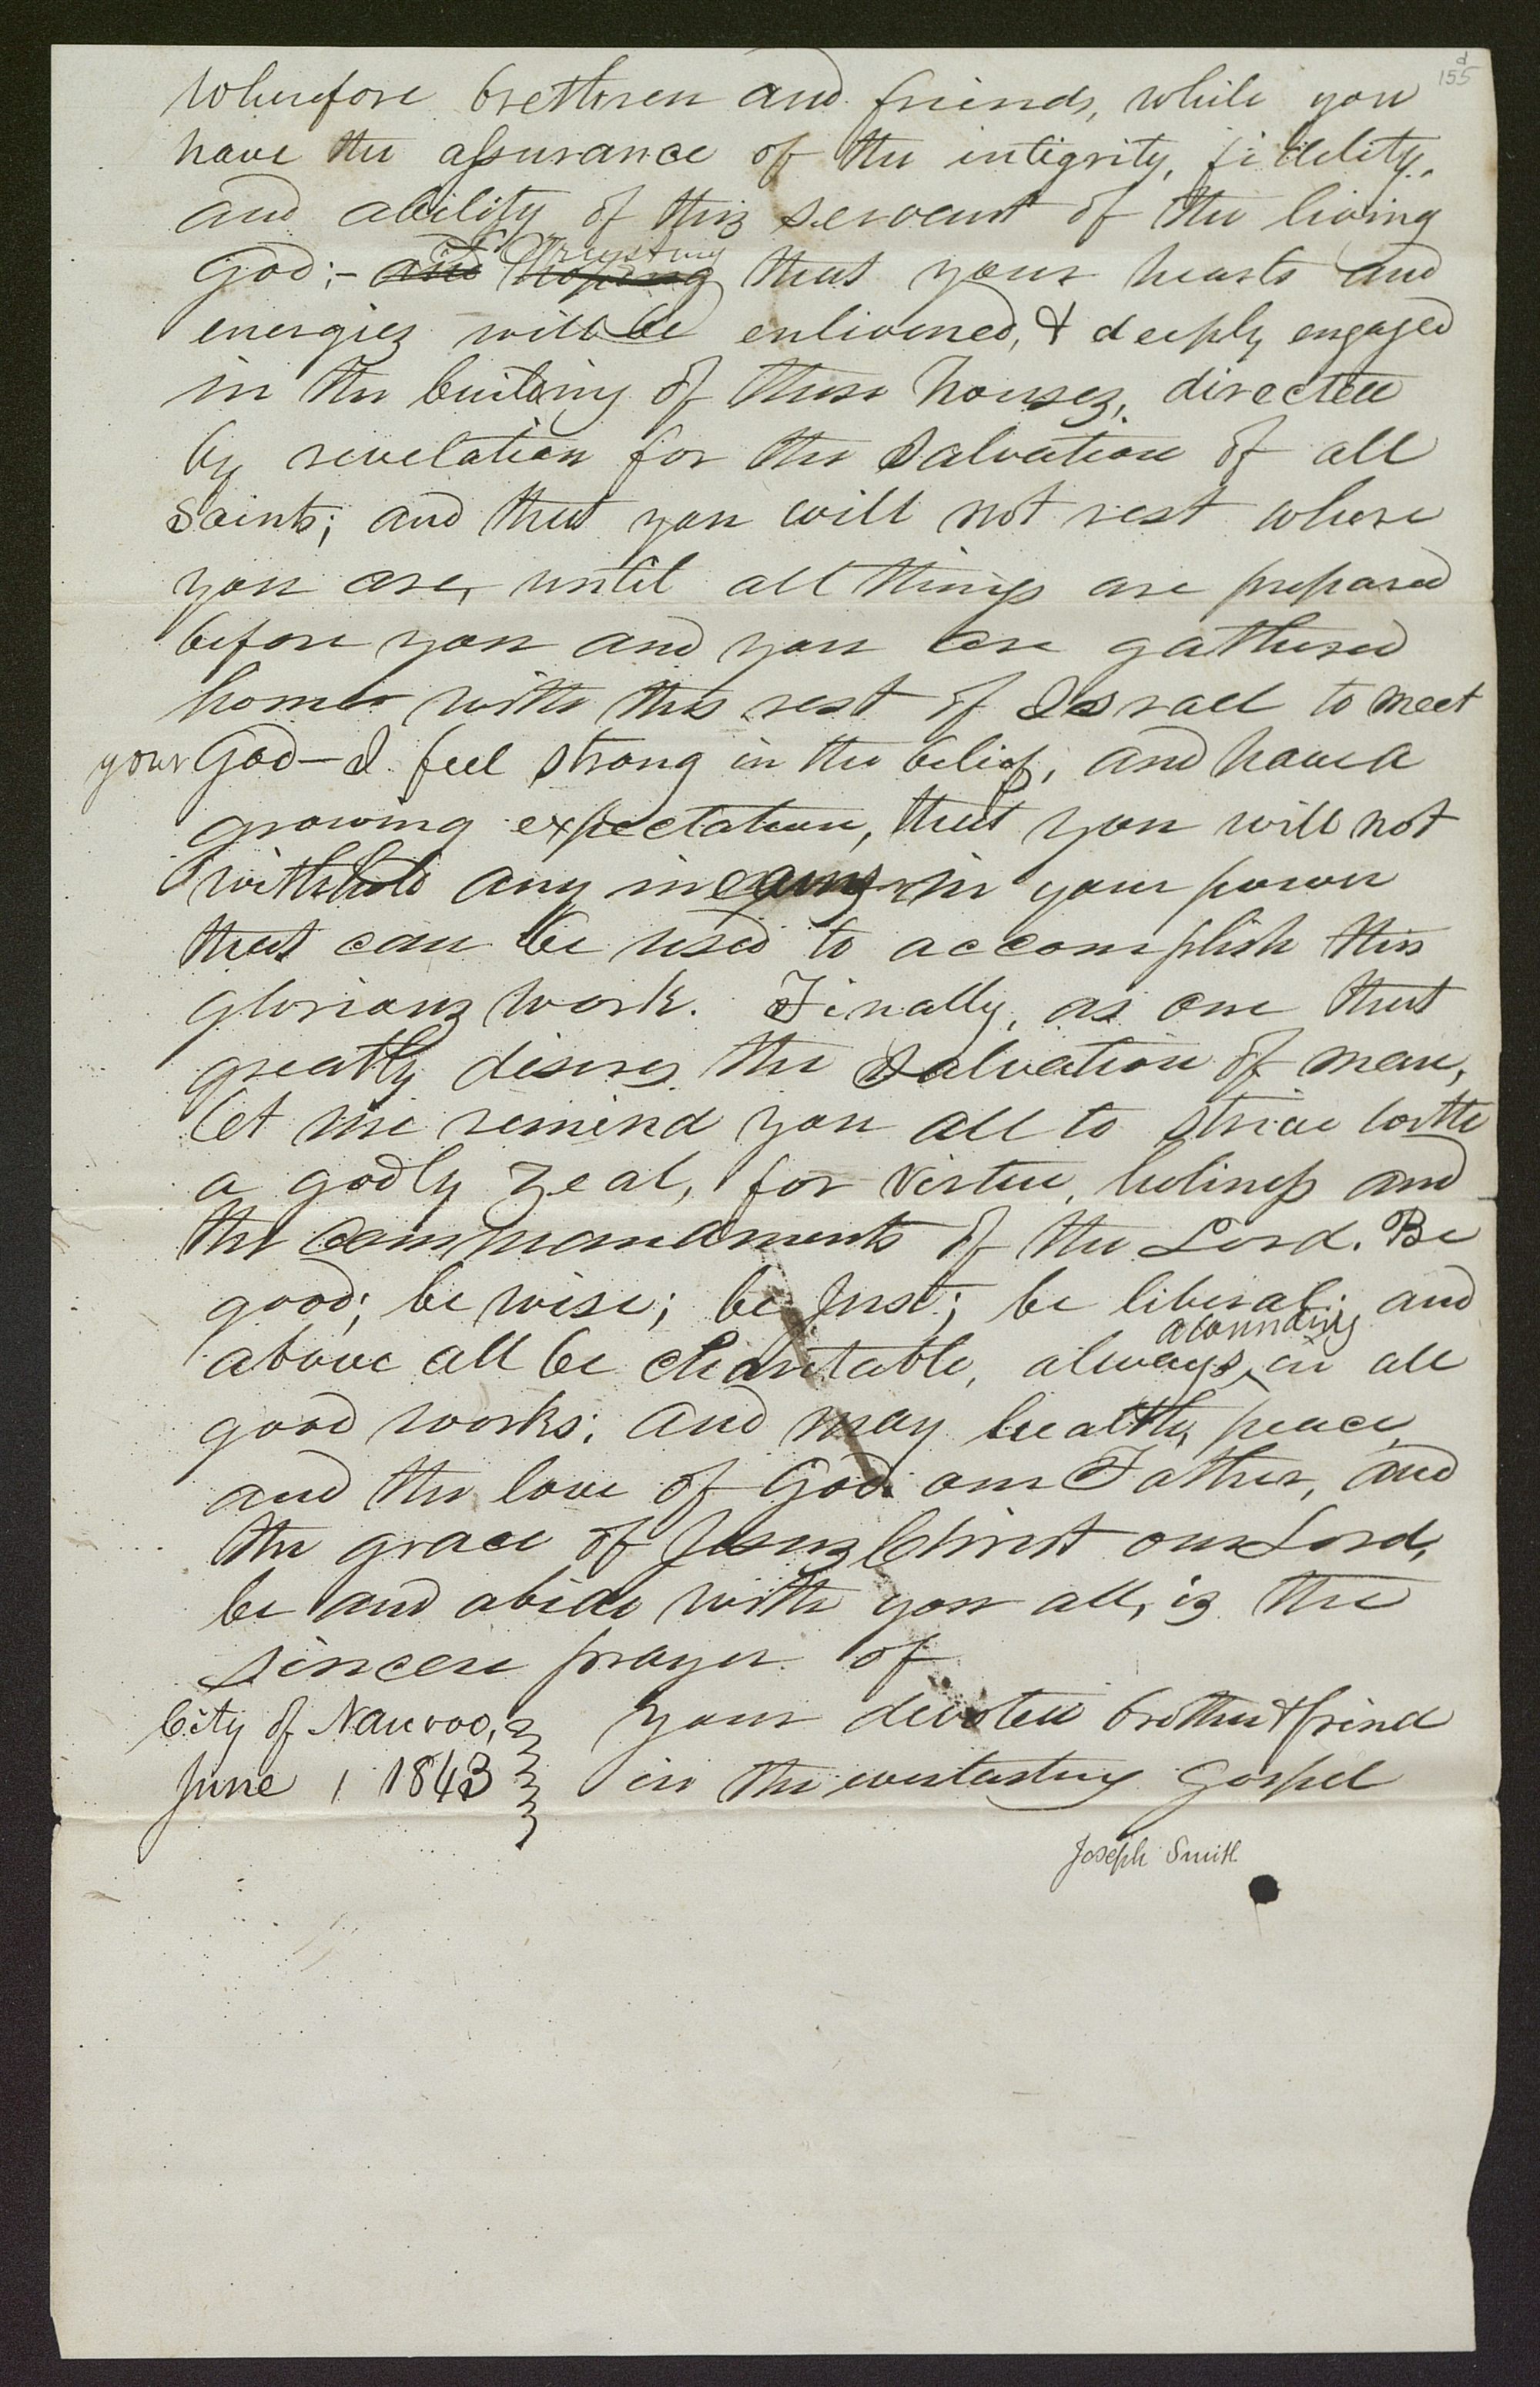 155
d
Wherefore brethren and friends, while you
have the assurance of the integrity, fidelity,
and ability of this servant of the living
God;- and hoping Trusting that your hearts and
energies will be enlivened, & deeply engaged
in the building of these houses, directed
by revelation for the Salvation of all
Saints; and that you will not rest where
you are, until all things are prepared
before you and you are gathered
home with the rest of Israel to meet
your God—I feel strong in the belief, and have a
growing expectation, that you will not
withhold any means in your power
that can be used to accomplish this
glorious work. Finally, as one that
greatly desires the Salvation of man,
let me remind you all to strive with
a godly zeal, for virtue, holiness and
the commandments of the Lord. Be
good; be wise; be Just; be liberal; and
above all be charitable, always abounding in all
good works; and may health, peace
and the love of God our Father, and
the grace of Jesus Christ our Lord,
be and abide with you all, is the
sincere prayer of
City of Nauvoo, your devoted brother & frind
June 1 1843 in the everlasting Gospel
Joseph Smith